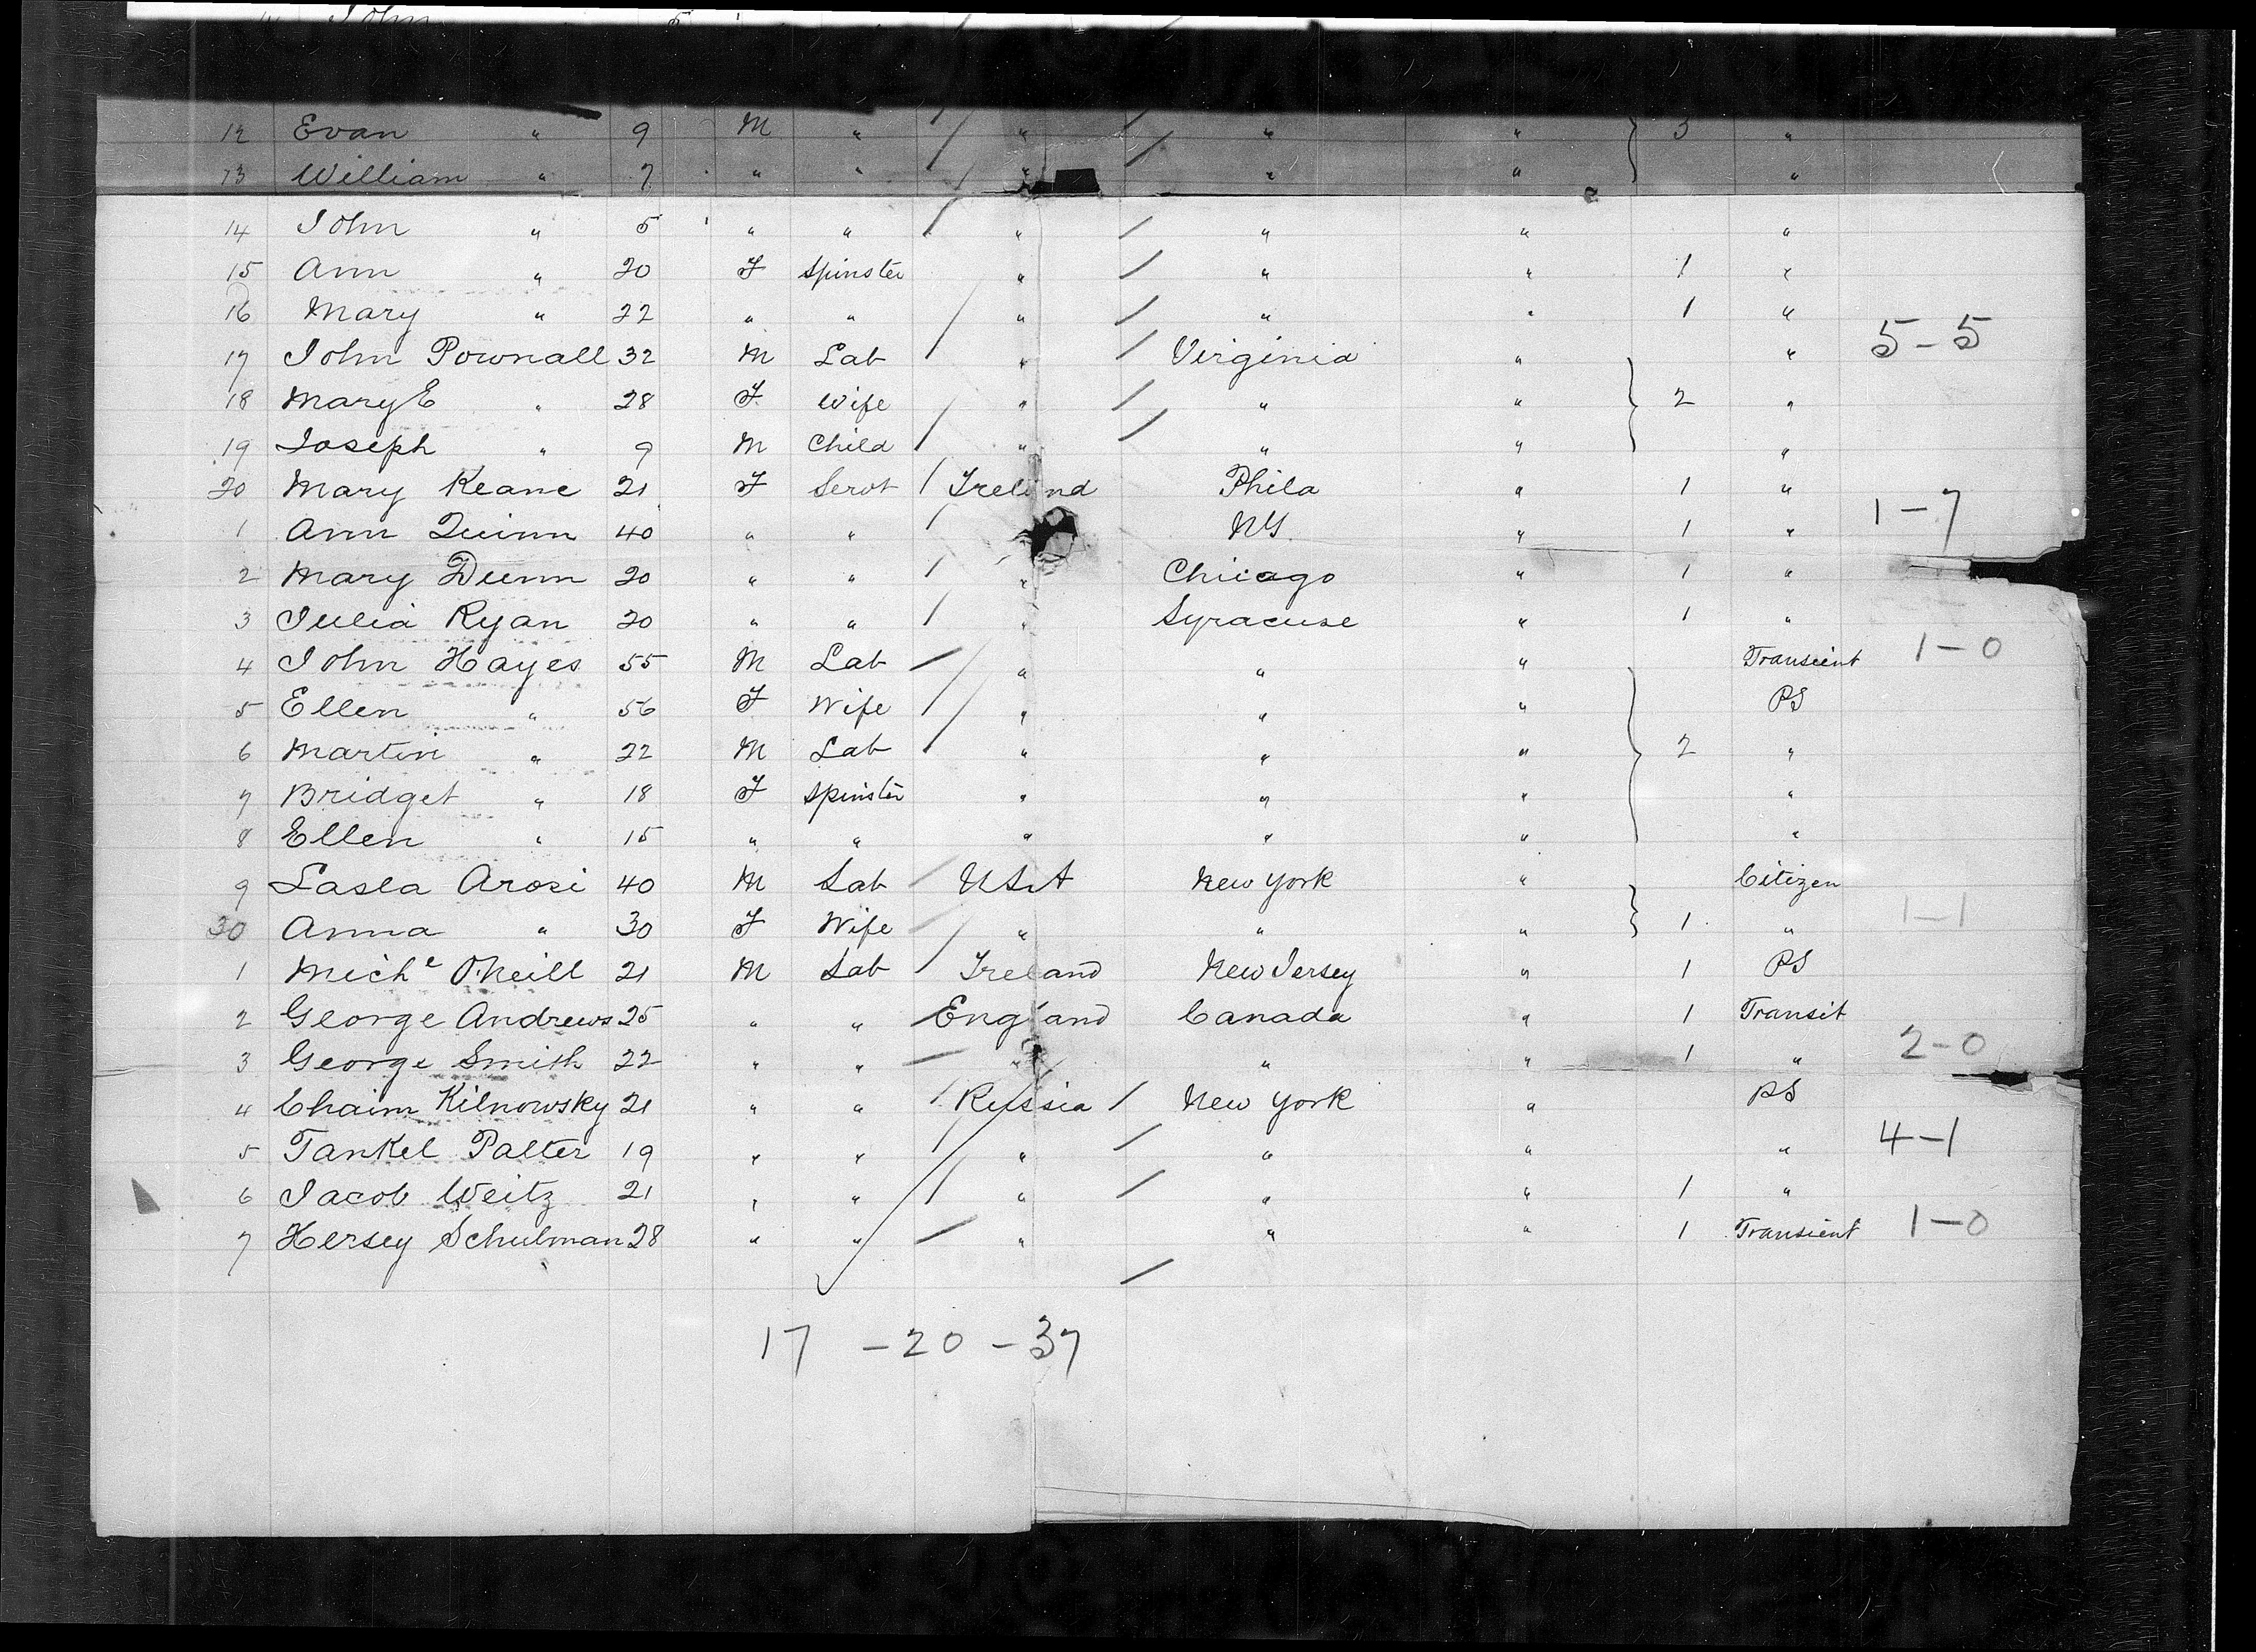 14 John 5
12 Evan " 9 M " " " " 3 "
13 William " 7 " " " " " "
14 John " 5 " " " " " "
15 Ann " 20 F Spinster " " " 1 "
16 Mary " 22 " " " " " 1 "
17 John Pownall 32 M Lab " Virginia " " 5-5
18 Mary E " 28 F Wife " " " 2 "
19 Joseph " 9 M Child " " " "
20 Mary Keane 21 F Servt Ireland Phila " 1 "
1 Ann Quinn 40 " " NY. " 1 " 1-7
2 Mary Dunn 20 " " " Chicago " 1 "
3 Julia Ryan 20 " " " Syracuse " 1 "
4 John Hayes 55 M Lab " " " Transient 1-0
5 Ellen " 56 F Wife " " " PS
6 Martin " 22 M Lab " " " 2 "
7 Bridget " 18 F Spinster " " " "
8 Ellen " 15 " " " " " "
9 Lasla Arosi 40 M Lab USA New York " Citizen
30 Anna " 30 F Wife " " " 1 " 1-1
1 Michl O'Neill 21 M Lab Ireland New Jersey " 1 PS
2 George Andrews 25 " " England Canada " 1 Transit
3 George Smith 22 " " " " " 1 " 2-0
4 Chaim Kilnowsky 21 " " Russia New York " PS
5 Tankel Palter 19 " " " " " " 4-1
6 Jacob Weitz 21 " " " " " 1 "
7 Hersey Schulman 28 " " " " " 1 Transient 1-0
17 - 20 - 37